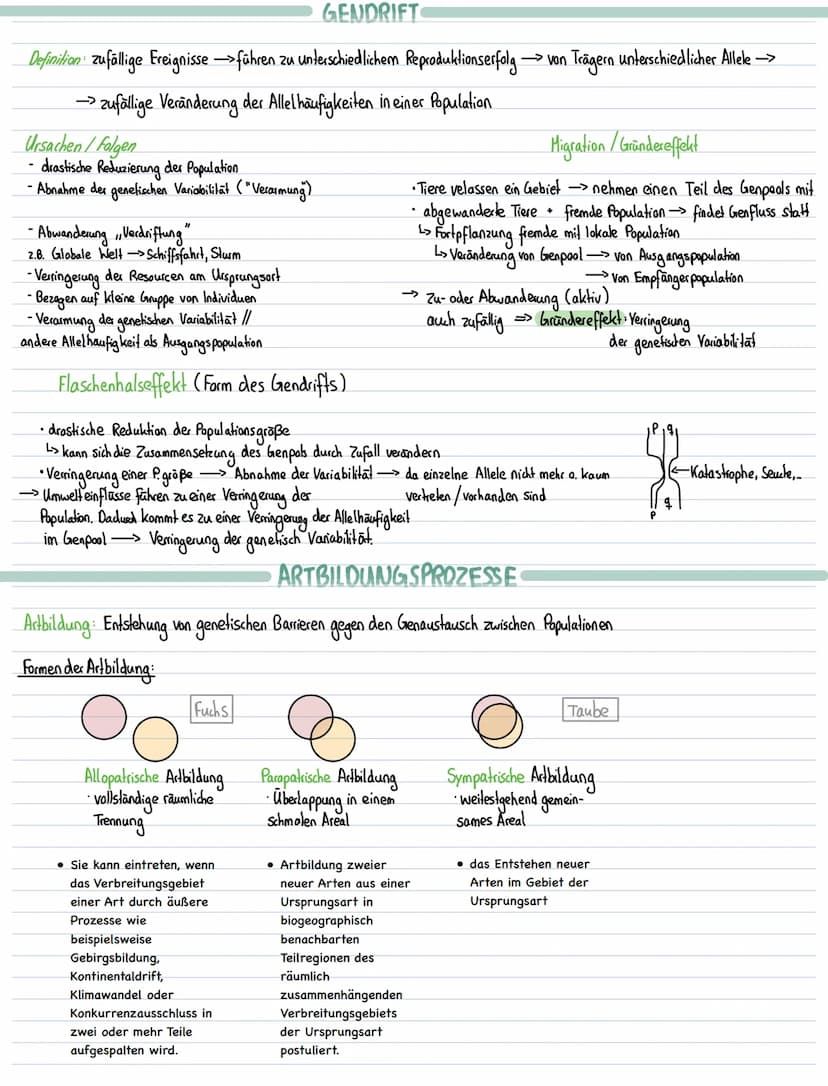 GENDRIFT
Definition: zufällige Ereignisse → führen zu unterschiedlichem Reproduktionserfolg → von Trägern unterschiedlicher Allele →
→ zufällige Veränderung der Allelhäufigkeiten in einer Population
Ursachen / Folgen
- drastische Reduzierung der Population
- Abnahme der genetischen Variabilität ("Verarmung")
- Abwanderung „Verdriftung"
z.B. Globale Welt → Schifffahrt, Sturm
- Verringerung der Resourcen am Ursprungsort
- Bezogen auf kleine Gruppe von Individuen
- Verarmung der genetischen Variabilität //
andere Allelhäufigkeit als Ausgangspopulation
Migration / Gründereffekt
· Tiere velassen ein Gebiet → nehmen einen Teil des Genpools mit
· abgewanderte Tiere + fremde Population → findet Genfluss statt
↳ Fortpflanzung fremde mit lokale Population
↳ Veränderung von Genpool → von Ausgangspopulation
→ von Empfängerpopulation
→ Zu- oder Abwanderung (aktiv)
auch zufällig ⇒ Gründereffekt: Verringerung
der genetischen Variabilität
Flaschenhalseffekt (Form des Gendrifts)
· drastische Reduktion der Populationsgröße
↳ kann sich die Zusammensetzung des Genpols durch Zufall verändern
· Verringerung einer P.größe → Abnahme der Variabilität → da einzelne Allele nicht mehr o. kaum
vertreten / vorhanden sind
→ Umwelteinflüsse führen zu einer Verringerung der
Population. Dadurch kommt es zu einer Verringerung der Allelhäufigkeit
im Genpool → Verringerung der genetisch Variabilität.
P q
Katastrophe, Seuche,..
q
P
ARTBILDUNGSPROZESSE
Artbildung: Entstehung von genetischen Barrieren gegen den Genaustausch zwischen Populationen
Formen der Artbildung:
Fuchs
Taube
Allopatrische Artbildung
· vollständige räumliche
Trennung
Parapatrische Artbildung
· Überlappung in einem
schmalen Areal
Sympatrische Artbildung
· weitestgehend gemein-
sames Areal
• Sie kann eintreten, wenn
das Verbreitungsgebiet
einer Art durch äußere
Prozesse wie
beispielsweise
Gebirgsbildung,
Kontinentaldrift,
Klimawandel oder
Konkurrenzausschluss in
zwei oder mehr Teile
aufgespalten wird.
• Artbildung zweier
neuer Arten aus einer
Ursprungsart in
biogeographisch
benachbarten
Teilregionen des
räumlich
zusammenhängenden
Verbreitungsgebiets
der Ursprungsart
postuliert.
• das Entstehen neuer
Arten im Gebiet der
Ursprungsart